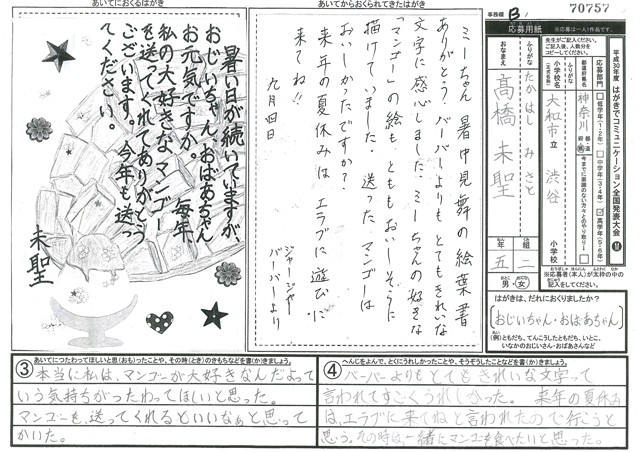 あいてにおくるはがき
暑い日が続いていますが、
お元気ですか。
おじいちゃん、おばあちゃん
毎年、
私の大好きなマンゴー
を送ってくれてありがとう
ございます。今年も送っ
てください。
未聖
あいてからおくられてきたはがき
ミーちゃん 暑中見舞の絵葉書
ありがとう。バーバーよりもとてもきれいな
文字に感心しました。ミーちゃんの好きな
「マンゴー」の絵も、とももおいしそうに
描けていました。送ったマンゴーは
おいしかったですか？
来年の夏休みは、エラブに遊びに
来てね!!
九月四日
ジャージャー
バーバーより
事務欄 B
70757
応募用紙
※応募は一人1作品です。
平成30年度 はがきでコミュニケーション全国発表大会
応募部門
低学年(1・2年)
中学年(3・4年)
高学年(5・6年)
神奈川
小学校名
大和市立
渋谷
小学校
ふりがな
たかはし みさと
おなまえ
髙橋 未聖
年 組
五 二
男・女
※応募者(本人)が太枠の中を
記入してください。
はがきは、だれにおくりましたか？
おじいちゃん・おばあちゃん
(例)ともだち、てんこうしたともだち、いとこ、
いなかのおじいさん・おばあさんなど
③ あいてにつたわってほしいと思(おも)ったことや、その時(とき)のきもちなどを書(か)きましょう。
本当に私は、マンゴーが大好きなんだよって
いう気持ちがつたわってほしいと思った。
マンゴーも、送ってくれるといいなぁと思って
かいた。
④ へんじをよんで、とくにうれしかったことや、そうぞうしたことなどを書(か)きましょう。
バーバーよりもとてもきれいな文字って
言われてすごくうれしかった。 来年の夏休み
は、エラブに来てねと言われたので行こうと
思う。その時は、一緒にマンゴーを食べたいと思った。